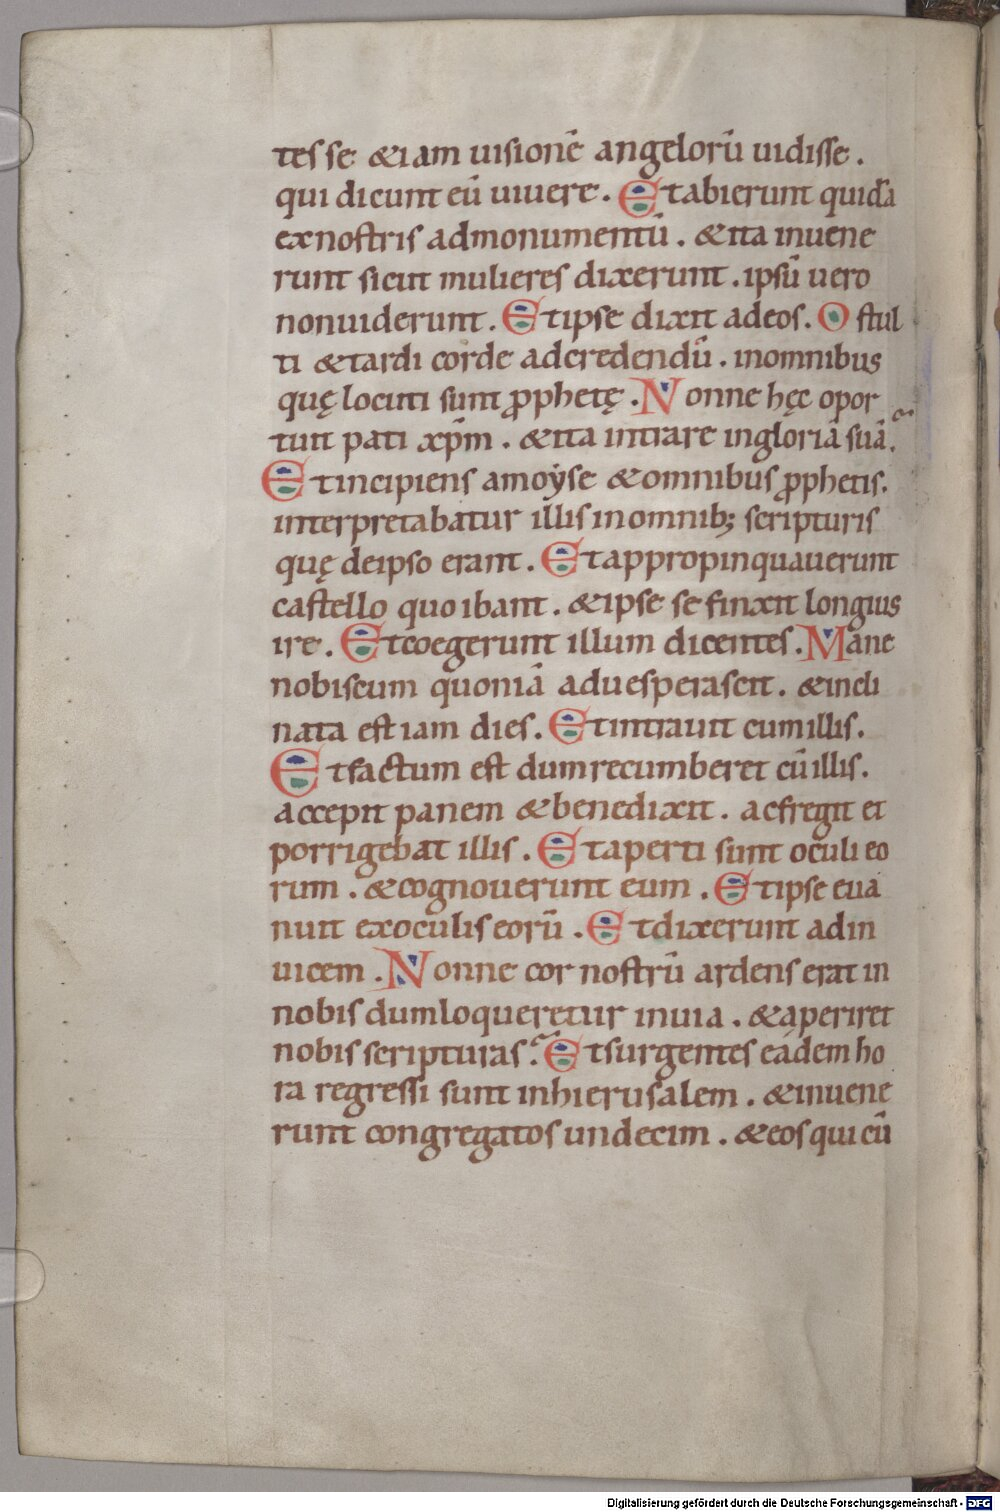 tes se &iam uisionē angelorū uidisse.
qui dicunt eū uiuere. Et abierunt quidā
ex nostris ad monumentū. & ita inuene
runt sicut mulieres dixerunt. ipsū uero
non uiderunt. Et ipse dixit ad eos. O stul
ti & tardi corde ad credendū. in omnibus
quę locuti sunt ꝓphetę. Nonne hęc opor
tuit pati xp̄m. & ita intrare in gloriā suā.
Et incipiens a moẏse & omnibus ꝓphetis.
interpretabatur illis in omnib; scripturis
quę de ipso erant. Et appropinquauerunt
castello quo ibant. & ipse se finxit longius
ire. Et coegerunt illum dicentes. Mane
nobiscum quoniā aduesperascit. & incli
nata est iam dies. Et intrauit cum illis.
Et factum est dum recumberet cū illis.
accepit panem & benedixit. ac fregit et
porrigebat illis. Et aperti sunt oculi eo
rum. & cognouerunt eum. Et ipse eua
nuit ex oculis eorū. Et dixerunt ad in
uicem. Nonne cor nostrū ardens erat in
nobis dum loqueretur in uia. & aperiret
nobis scripturas? Et surgentes eadem ho
ra regressi sunt in hierusalem. & inuene
runt congregatos undecim. & eos qui cū
Digitalisierung gefördert durch die Deutsche Forschungsgemeinschaft - DFG